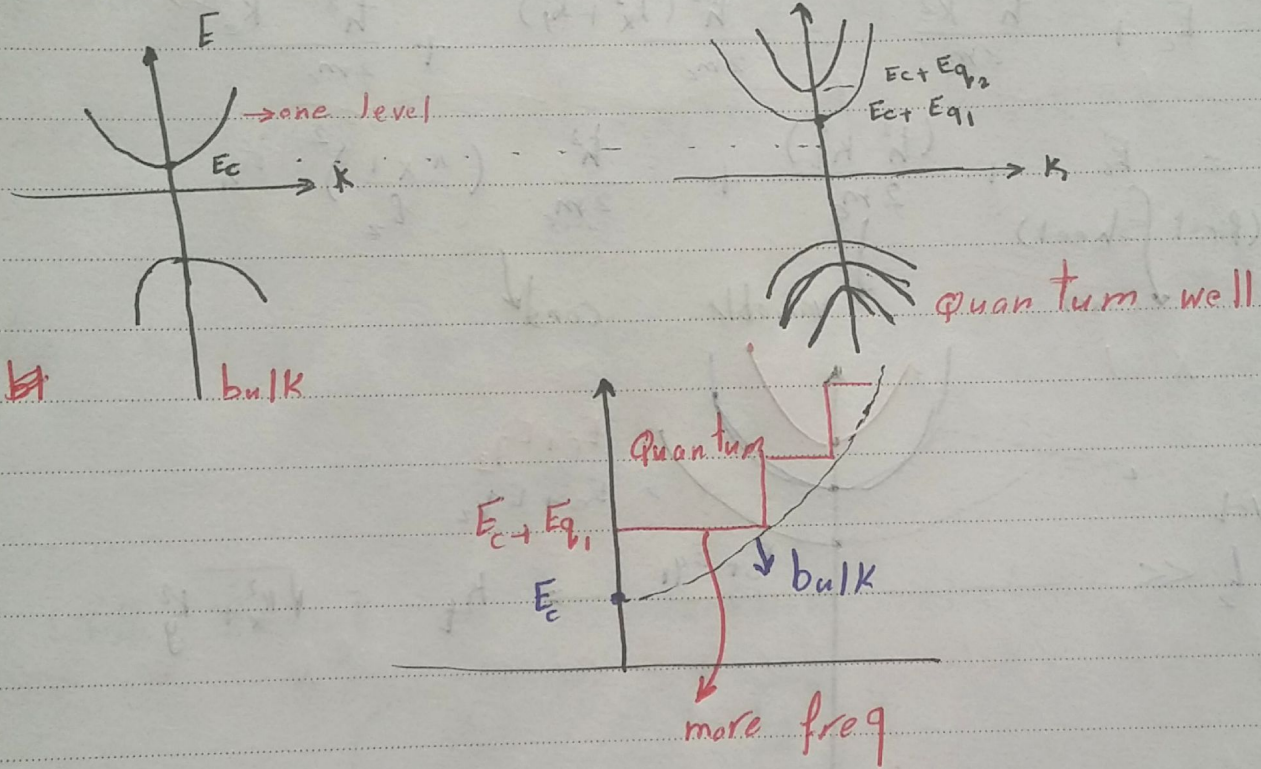 E
→ one level
Ec
k
bulk
Ec + Eq2
Ec + Eq1
k
Quantum well
Quantum
Ec + Eq1
bulk
Ec
more freq